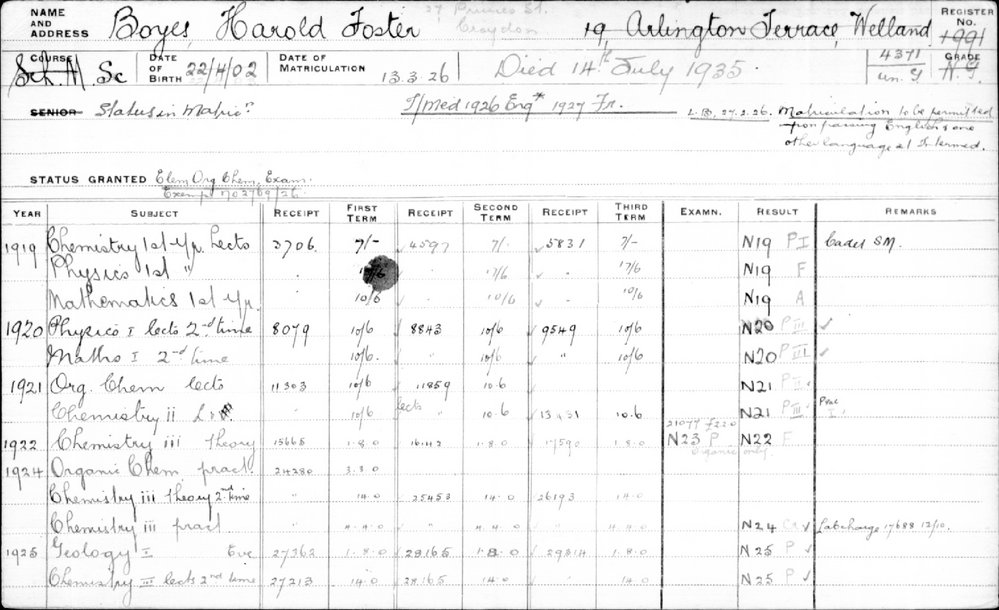 NAME AND ADDRESS Boyes, Harold Foster 27 Princes St. Croydon 19, Arlington Terrace, Welland REGISTER No. 1991
COURSE Sch. A/ Sc DATE OF BIRTH 22/4/02 DATE OF MATRICULATION 13.3.26 Died 14th July 1935. 4371 un. G GRADE
SENIOR Status in Matricn. I/Med 1926 Eng* 1927 Fr. L.B, 27.2.26. Matriculation to be permitted
upon passing English & one
other language at Intermed.
STATUS GRANTED Elem Org Chem, Exam.
Exempt 702/09/26
YEAR SUBJECT RECEIPT FIRST TERM RECEIPT SECOND TERM RECEIPT THIRD TERM EXAMN. RESULT REMARKS
1919 Chemistry 1st yr. Lects 3706. 7/- 4597 7/. 5831 7/- N19 P I Cadet SM.
Physics 1st " 17/6 17/6 17/6 N19 F
Mathematics 1st yr. 10/6 10/6 10/6 N19 A
1920 Physics I lects 2nd time 8079 10/6 8843 10/6 9549 10/6 N20 P III ✓
Maths I 2nd time 10/6. " 10/6 " 10/6 N20 P III ✓
1921 Org. Chem lects 11303 10/6 11859 10.6 N21 P I
Chemistry ii 10/6 lects " 10.6 13431 10.6 N21 P III Prac I.
21077 F220
1922 Chemistry iii Theory 15665 1.8.0 16142 1.8.0 17590 1.8.0 N23 P N22 F
Organic only.
1924 Organic Chem pract. 24280 3.3.0
Chemistry iii Theory 2nd time " 14.0 25453 14.0 26193 14.0
Chemistry iii pract " 4.4.0 " 4.4.0 4.4.0 N24 Cr ✓ Lab charge 17688 12/10.
1925 Geology I Eve 27362 1.8.0 28165 1.8.0 29814 1.8.0 N25 P ✓
Chemistry III lects 2nd time 27213 14.0 28165 14.0 14.0 N25 P ✓